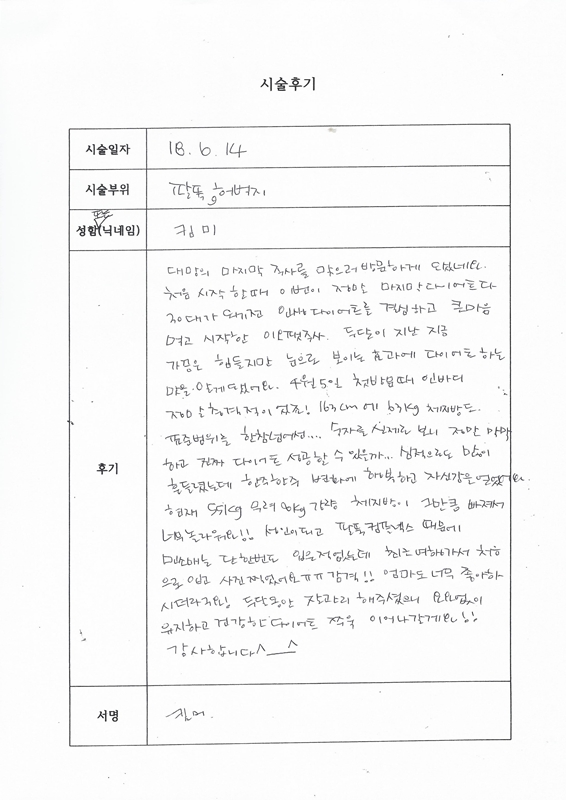 시술후기
시술일자 18. 6. 14
시술부위 팔뚝, 허벅지
성함(닉네임) 킴미
후기
대망의 마지막 주사를 맞으러 방문하게 되었네요.
처음 시작 할때 이번이 정말 마지막 다이어트다
30대가 되기전 인생 다이어트를 결심하고 큰마음
먹고 시작한 주사. 두달이 지난 지금
가끔은 힘들지만 눈으로 보이는 효과에 다이어트 하는
맛을 알게되었어요. 4월 5일 첫방문때 인바디
정말 충격적이 었죠! 163cm에 63kg 체지방도
표준범위를 한참넘어선... 숫자를 실제로 보니 정말 막막
하고 진짜 다이어트 성공할 수 있을까... 심적으로도 많이
흔들렸는데 한주한주 변화에 행복하고 자신감을 얻었어요.
현재 55kg 무려 8kg 가량 체지방이 그만큼 빠져서
너무 놀라워요!! 성인이되고 팔뚝컴플렉스 때문에
민소매는 단한번도 입은적없는데 최근 여행가서 처음
으로 입고 사진찍었어요ㅠㅠ 감격!! 엄마도 너무 좋아하
시더라구요! 두달동안 잘관리 해주셨으니 요요없이
유지하고 건강한 다이어트 쭈욱 이어나갈게요!!
감사합니다^__^
서명 킴미.